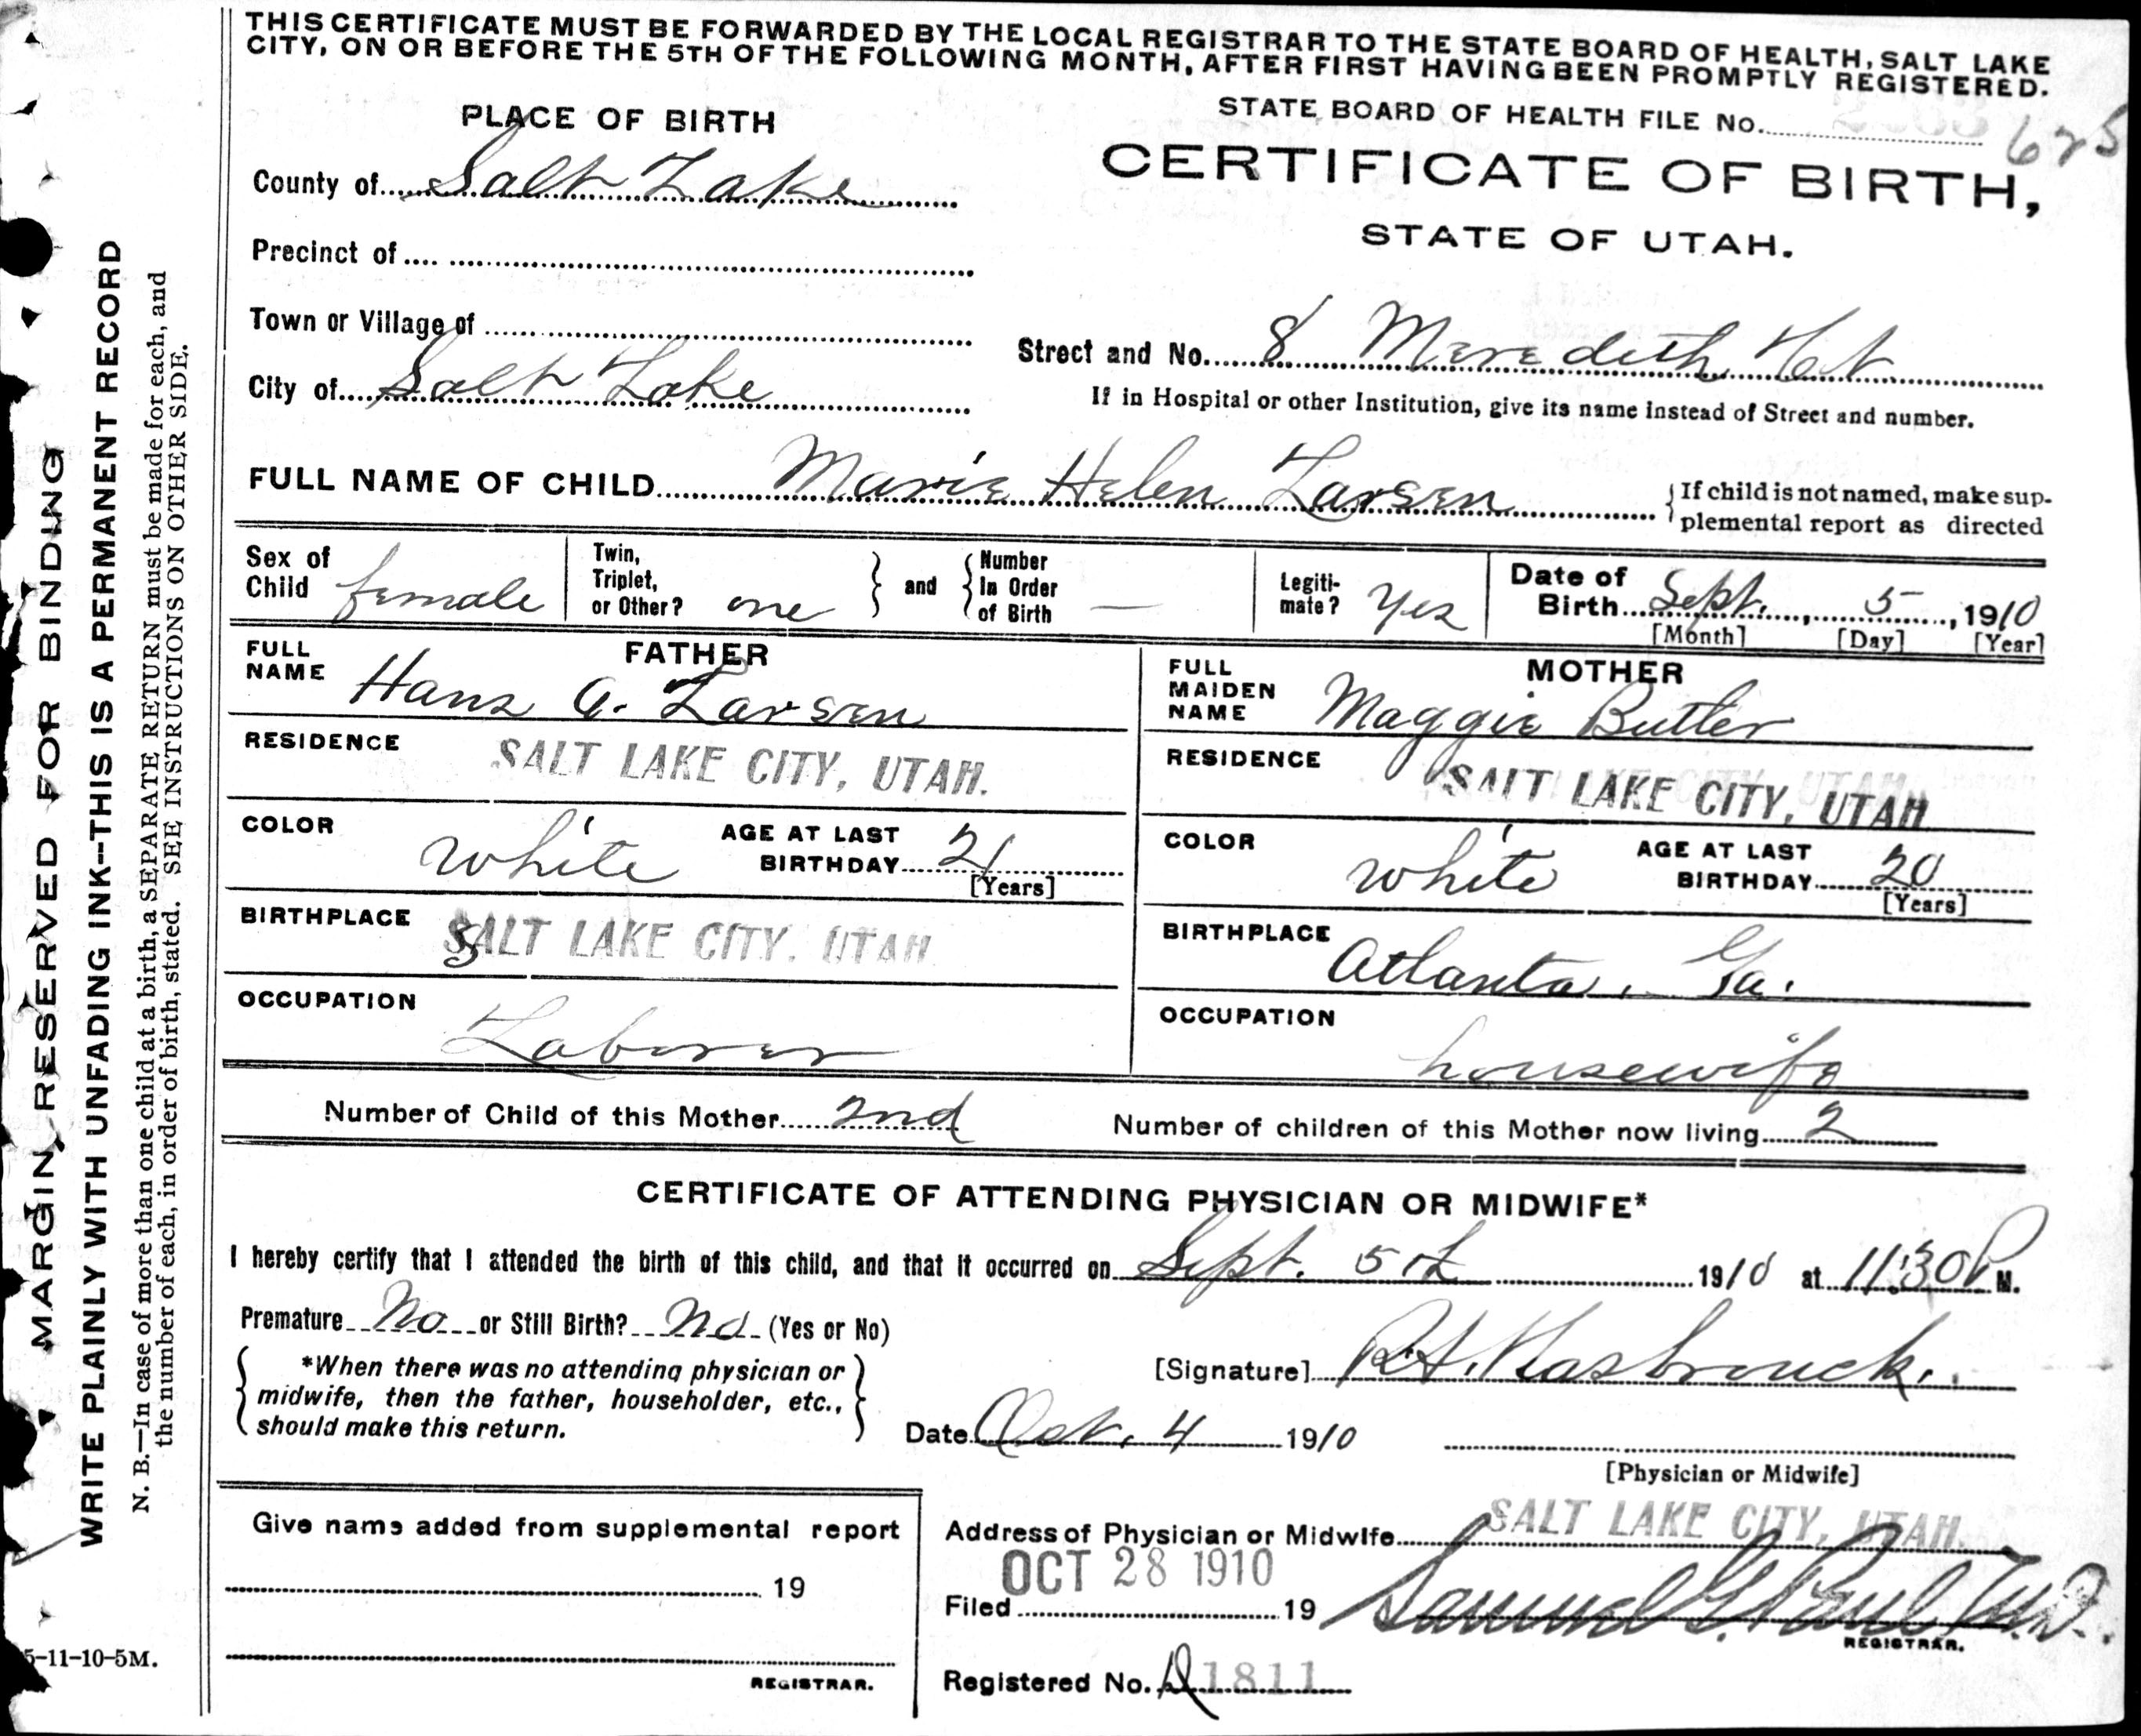 THIS CERTIFICATE MUST BE FORWARDED BY THE LOCAL REGISTRAR TO THE STATE BOARD OF HEALTH, SALT LAKE
CITY, ON OR BEFORE THE 5TH OF THE FOLLOWING MONTH, AFTER FIRST HAVING BEEN PROMPTLY REGISTERED.
PLACE OF BIRTH
STATE BOARD OF HEALTH FILE No.
625
County of Salt Lake
CERTIFICATE OF BIRTH,
STATE OF UTAH.
Precinct of
Town or Village of
Street and No. 8 Meredith
City of Salt Lake
If in Hospital or other Institution, give its name instead of Street and number.
FULL NAME OF CHILD Marie Helen Larsen
{If child is not named, make sup-
plemental report as directed
Sex of Child female
Twin, Triplet, or Other? one } and {Number In Order of Birth —
Legiti-
mate? Yes
Date of Birth Sept. , 5 , 1910
[Month] [Day] [Year]
FATHER
FULL NAME Hans A. Larsen
RESIDENCE SALT LAKE CITY, UTAH.
COLOR white AGE AT LAST BIRTHDAY 21
[Years]
BIRTHPLACE SALT LAKE CITY. UTAH
OCCUPATION Laborer
MOTHER
FULL MAIDEN NAME Maggie Butler
RESIDENCE SALT LAKE CITY, UTAH
COLOR white AGE AT LAST BIRTHDAY 20
[Years]
BIRTHPLACE Atlanta, Ga.
OCCUPATION housewife
Number of Child of this Mother 2nd Number of children of this Mother now living 2
CERTIFICATE OF ATTENDING PHYSICIAN OR MIDWIFE*
I hereby certify that I attended the birth of this child, and that it occurred on Sept. 5th 1910 at 11:30 P M.
Premature No or Still Birth? No (Yes or No)
{ *When there was no attending physician or
midwife, then the father, householder, etc.,
should make this return. }
[Signature] R.H. Hasbrouck.
Date Oct. 4 1910
[Physician or Midwife]
Give name added from supplemental report
19
REGISTRAR.
Address of Physician or Midwife SALT LAKE CITY, UTAH.
OCT 28 1910
Filed 19 Samuel G. Paul M.D.
REGISTRAR.
Registered No. 1811
MARGIN RESERVED FOR BINDING
WRITE PLAINLY WITH UNFADING INK--THIS IS A PERMANENT RECORD
N. B.—In case of more than one child at a birth, a SEPARATE RETURN must be made for each, and
the number of each, in order of birth, stated. SEE INSTRUCTIONS ON OTHER SIDE.
5-11-10-5M.